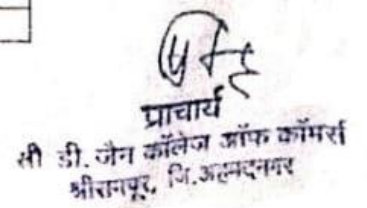 प्राचार्य
सी डी. जैन कॉलेज ऑफ कॉमर्स
श्रीरामपूर, जि.अहमदनगर